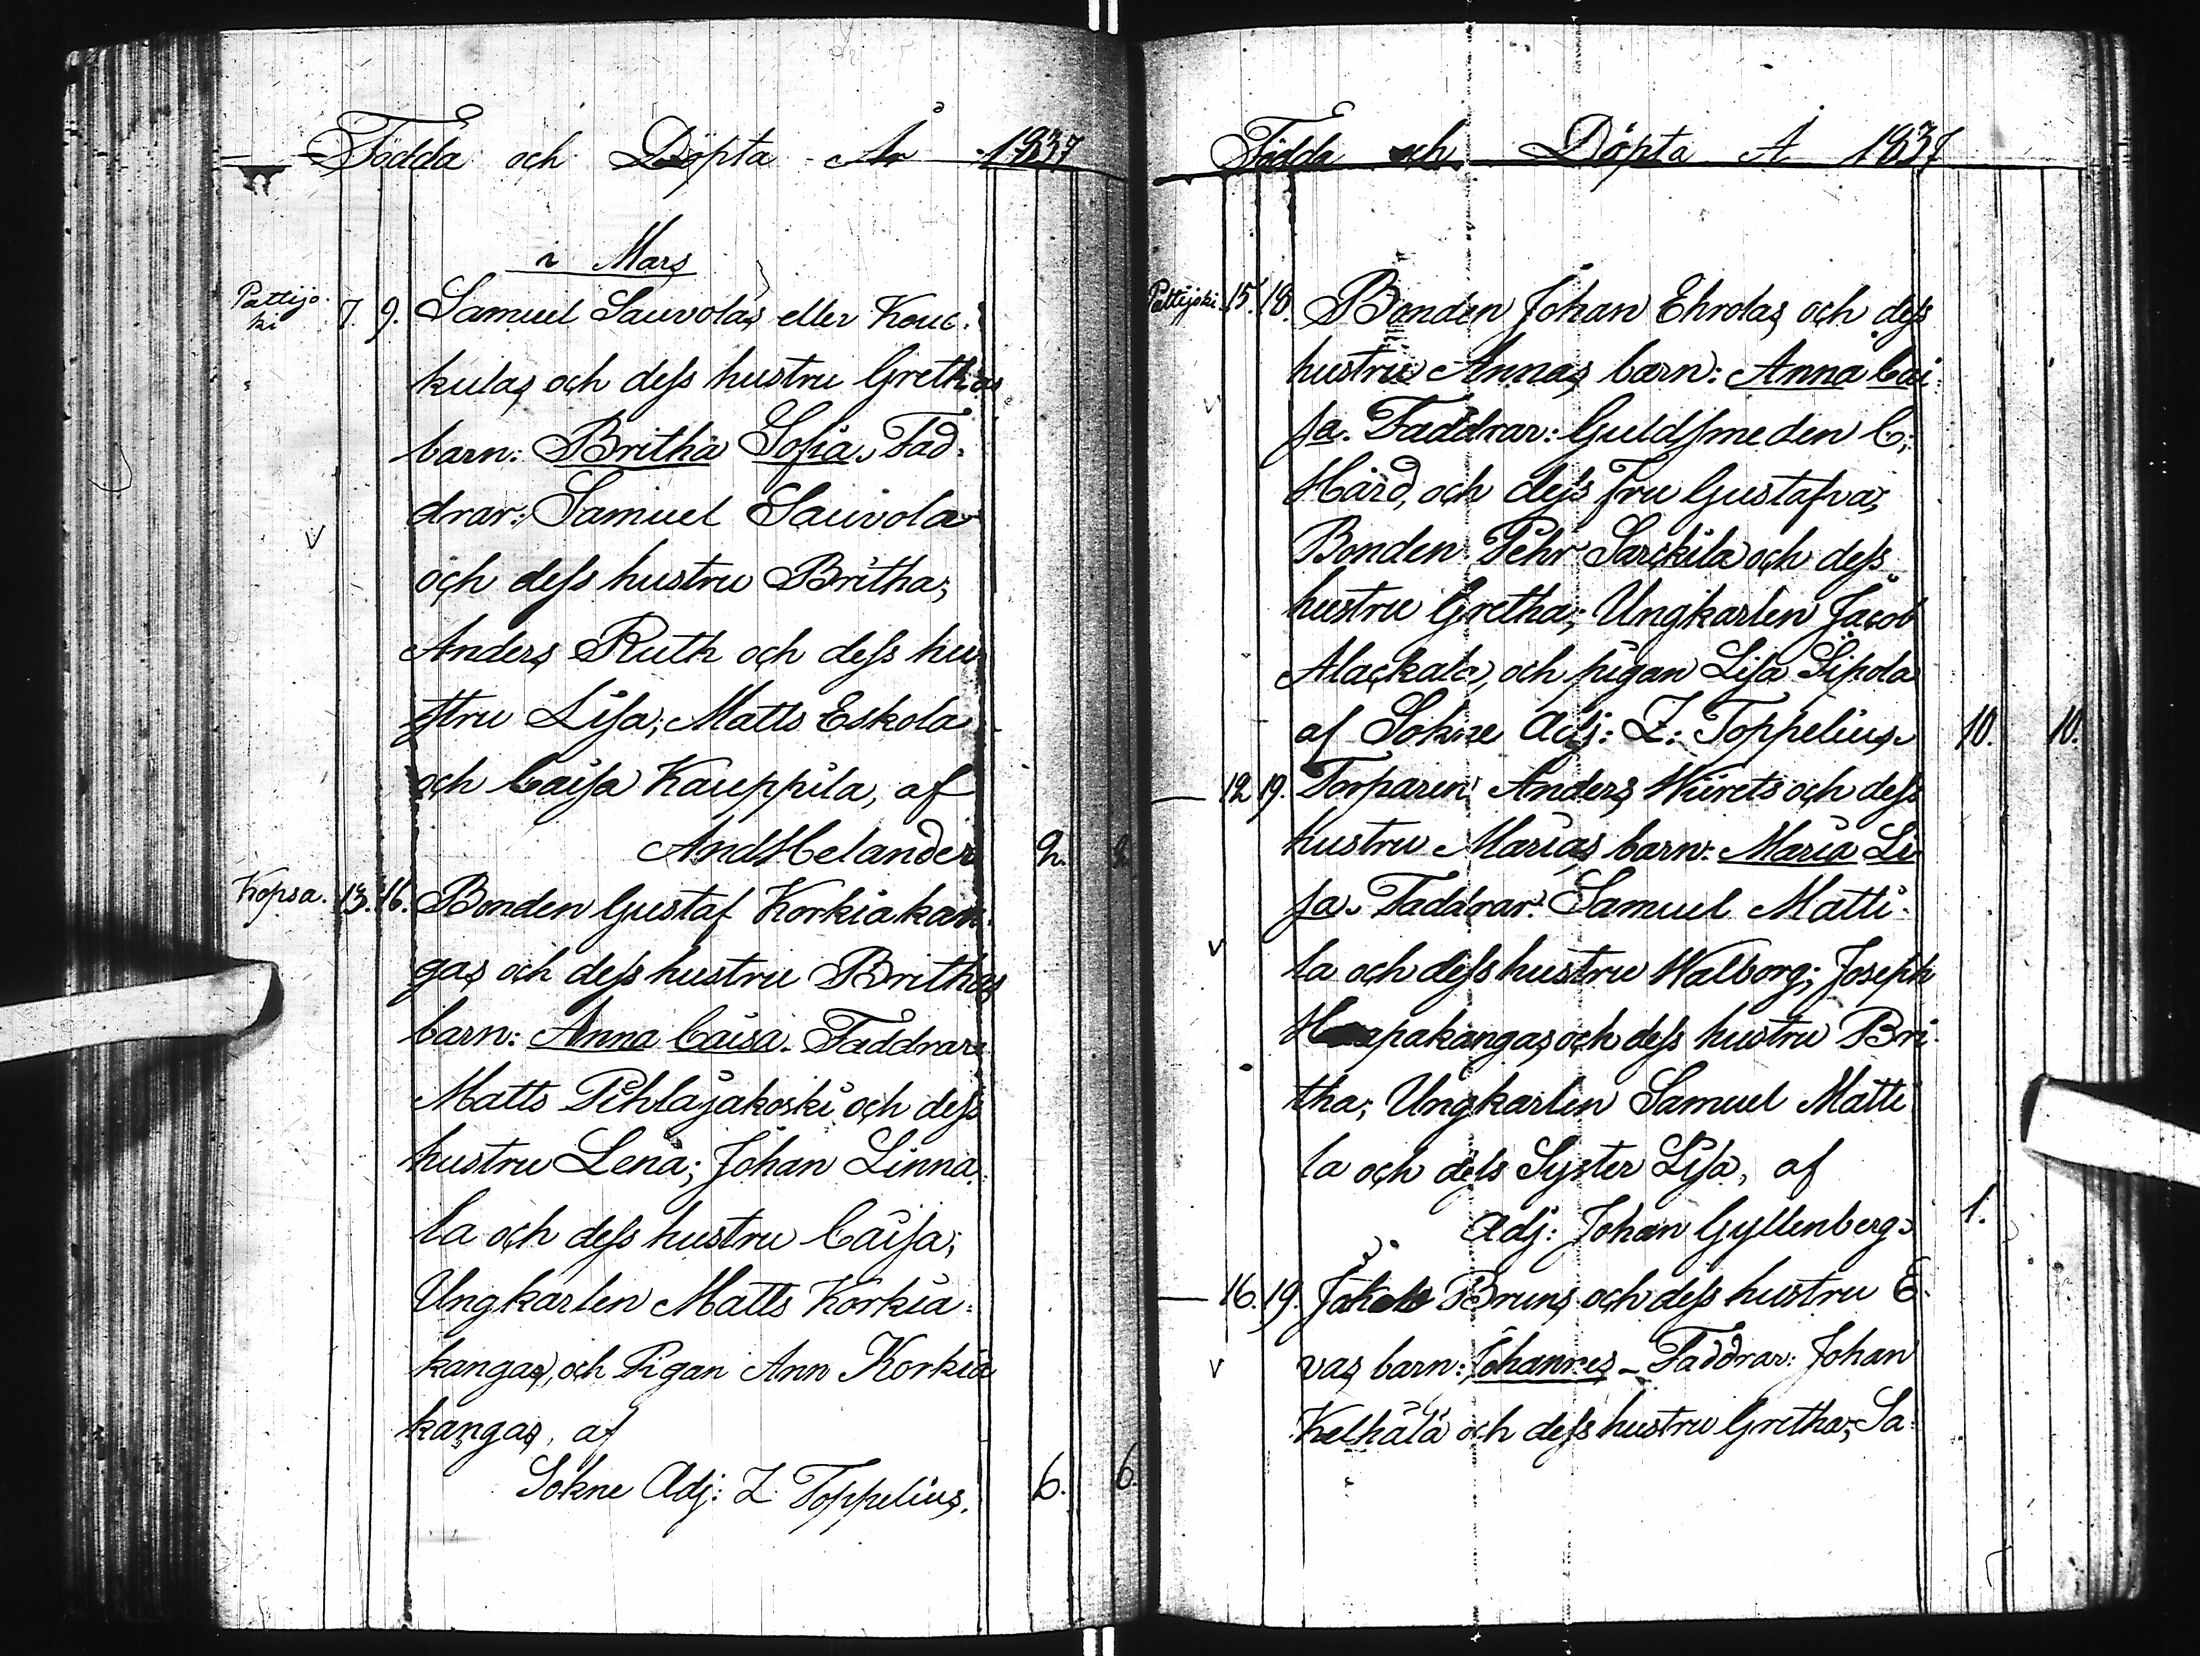 Födda och Döpta År 1837
i Mars
Pattijo-
ki 7. 9. Samuel Sauvolas eller Kouc-
kulas och dess hustru Grethas
barn: Britha Sofia. Fad-
drar: Samuel Sauvola
och dess hustru Britha;
Anders Ruth och dess hu-
stru Lisa; Matts Eskola
och Caisa Kauppila, af
And Helander 2. 2
Kopsa. 13. 16. Bonden Gustaf Korkiakan-
gas och dess hustru Brithas
barn: Anna Caisa. Faddrar:
Matts Pihlajakoski och dess
hustru Lena; Johan Linna-
la och dess hustru Caisa;
Ungkarlen Matts Korkia-
kangas, och Pigan Ann Korkia
kangas, af
Sokne Adj: Z. Toppelius. 6. 6.
Födda och Döpta A 1837
Pattijoki. 15. 18. Bonden Johan Ehrolas och dess
hustru Annas barn: Anna Cai-
sa. Faddrar: Guldsmeden C:
Hård, och dess Fru Gustafva;
Bonden Pehr Sarckila och dess
hustru Gretha; Ungkarlen Jacob
Alackala, och pigan Lisa Sipola
af Sokne Adj: Z: Toppelius. 10. 10.
— 12 19. Torparen Anders Wirets och dess
hustru Marias barn: Maria Li-
sa. Faddrar: Samuel Matti-
la och dess hustru Walborg; Joseph
Haapakangas och dess hustru Bri-
tha; Ungkarlen Samuel Matti
la och dess Syster Lisa, af
Adj: Johan Gyllenberg. 1.
— 16. 19. Bruns och dess hustru E-
vas barn: Johannes – Faddrar: Johan
Kelhälä och dess hustru Gretha; Sa-